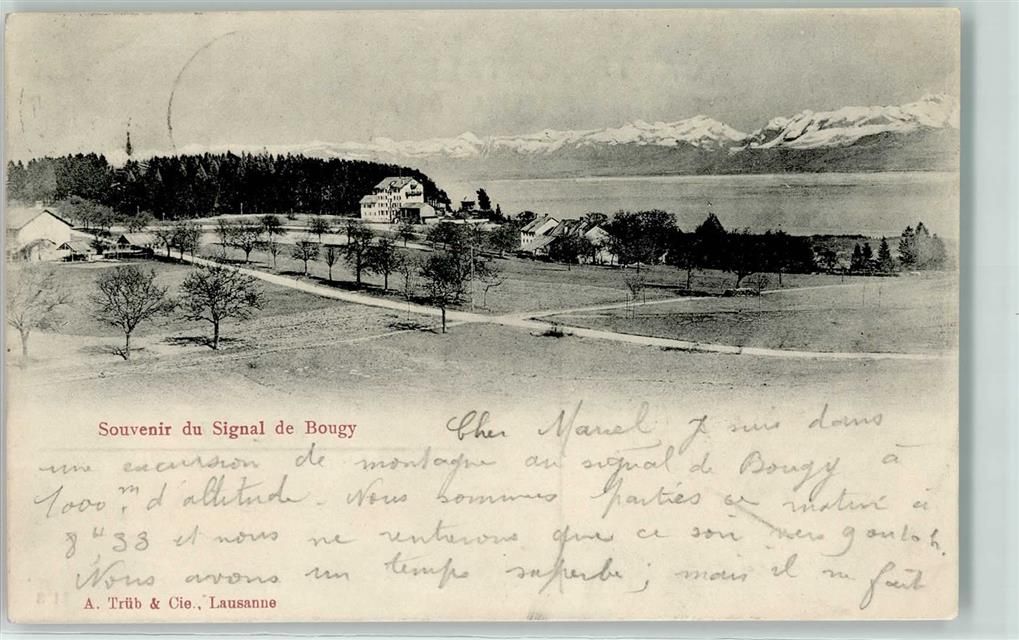 Souvenir du Signal de Bougy
Cher Marcel J suis dans
une excursion de montagne au signal de Bougy à
1000 m, d'altitude. Nous sommes partis ce matin à
8 H 33 et nous ne rentrerons que ce soir vers 9 ou 10 h.
Nous avons un temps superbe; mais il ne fait
A. Trüb & Cie., Lausanne